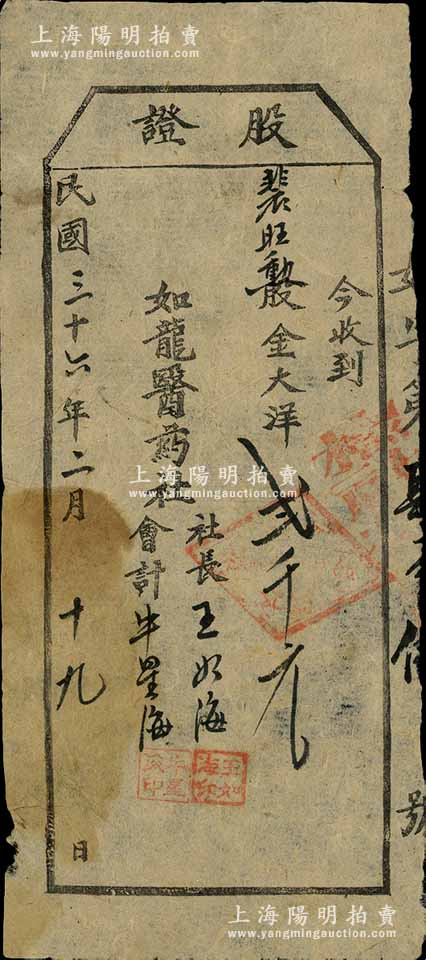 上海陽明拍賣
www.yangmingauction.com
股證
今收到
裴旺勲股金大洋弍千元
如龍醫药社
社長王如海
會計牛星海
民國三十六年二月十九日
號
王如海印
上海陽明拍賣
www.yangmingauction.com
上海陽明拍賣
www.yangmingauction.com